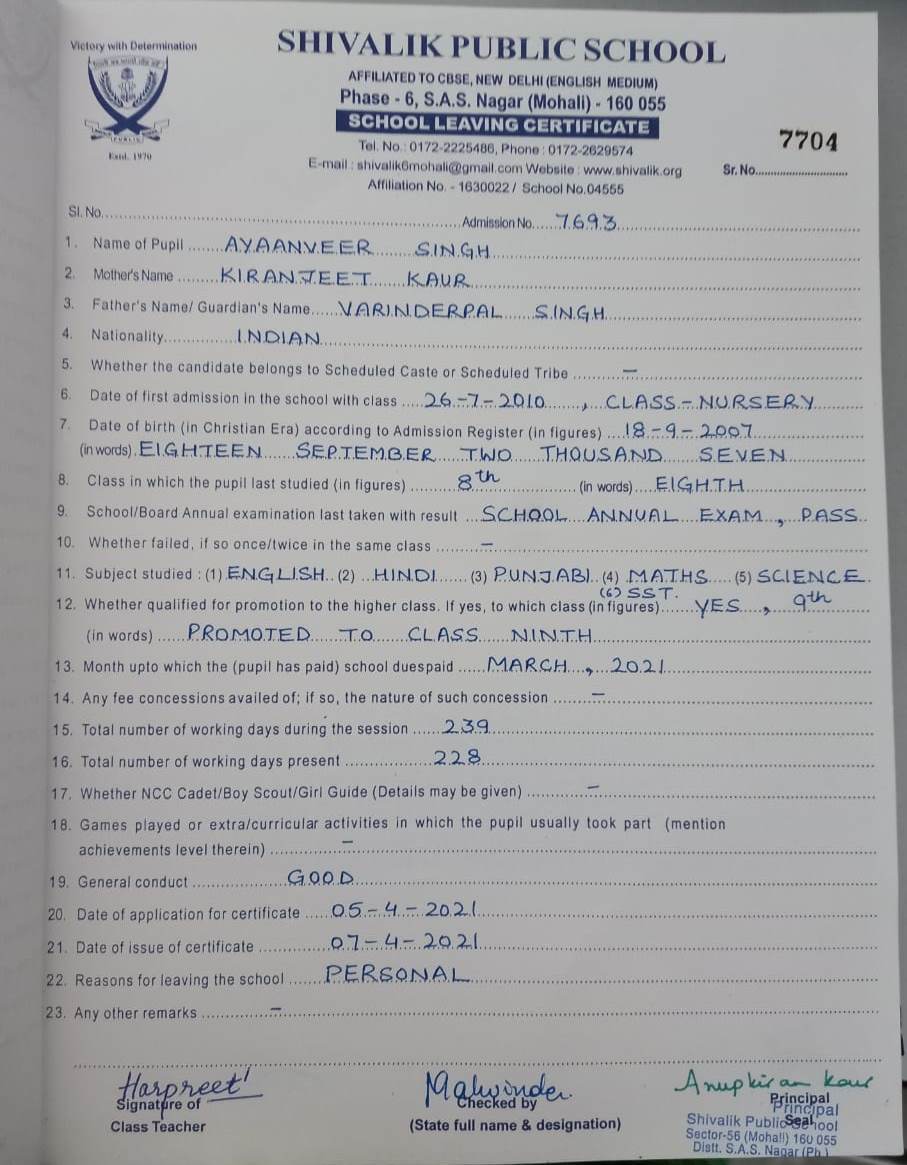 Victory with Determination
Estd. 1970
SHIVALIK PUBLIC SCHOOL
AFFILIATED TO CBSE, NEW DELHI (ENGLISH MEDIUM)
Phase - 6, S.A.S. Nagar (Mohali) - 160 055
SCHOOL LEAVING CERTIFICATE
Tel. No.: 0172-2225486, Phone : 0172-2629574
E-mail : shivalik6mohali@gmail.com Website : www.shivalik.org
Affiliation No. - 1630022 / School No.04555
7704
Sr. No.
Sl. No. Admission No. 7693
1. Name of Pupil AYAANVEER SINGH
2. Mother's Name KIRANJEET KAUR
3. Father's Name/ Guardian's Name VARINDERPAL SINGH
4. Nationality INDIAN
5. Whether the candidate belongs to Scheduled Caste or Scheduled Tribe –
6. Date of first admission in the school with class 26-7-2010, CLASS-NURSERY
7. Date of birth (in Christian Era) according to Admission Register (in figures) 18-9-2007
(in words) EIGHTEEN SEPTEMBER TWO THOUSAND SEVEN
8. Class in which the pupil last studied (in figures) 8th (in words) EIGHTH
9. School/Board Annual examination last taken with result SCHOOL ANNUAL EXAM, PASS
10. Whether failed, if so once/twice in the same class –
11. Subject studied : (1) ENGLISH (2) HINDI (3) PUNJABI (4) MATHS (5) SCIENCE
(6) SST.
12. Whether qualified for promotion to the higher class. If yes, to which class (in figures) YES, 9th
(in words) PROMOTED TO CLASS NINTH
13. Month upto which the (pupil has paid) school duespaid MARCH, 2021
14. Any fee concessions availed of; if so, the nature of such concession –
15. Total number of working days during the session 239
16. Total number of working days present 228
17. Whether NCC Cadet/Boy Scout/Girl Guide (Details may be given) –
18. Games played or extra/curricular activities in which the pupil usually took part (mention
achievements level therein) –
19. General conduct GOOD
20. Date of application for certificate 05-4-2021
21. Date of issue of certificate 07-4-2021
22. Reasons for leaving the school PERSONAL
23. Any other remarks –
Harpreet
Signature of
Class Teacher
Malwinder
Checked by
(State full name & designation)
Anupkiran Kaur
Principal
Principal
Seal
Shivalik Public School
Sector-56 (Mohali) 160 055
Distt. S.A.S. Nagar (Pb.)